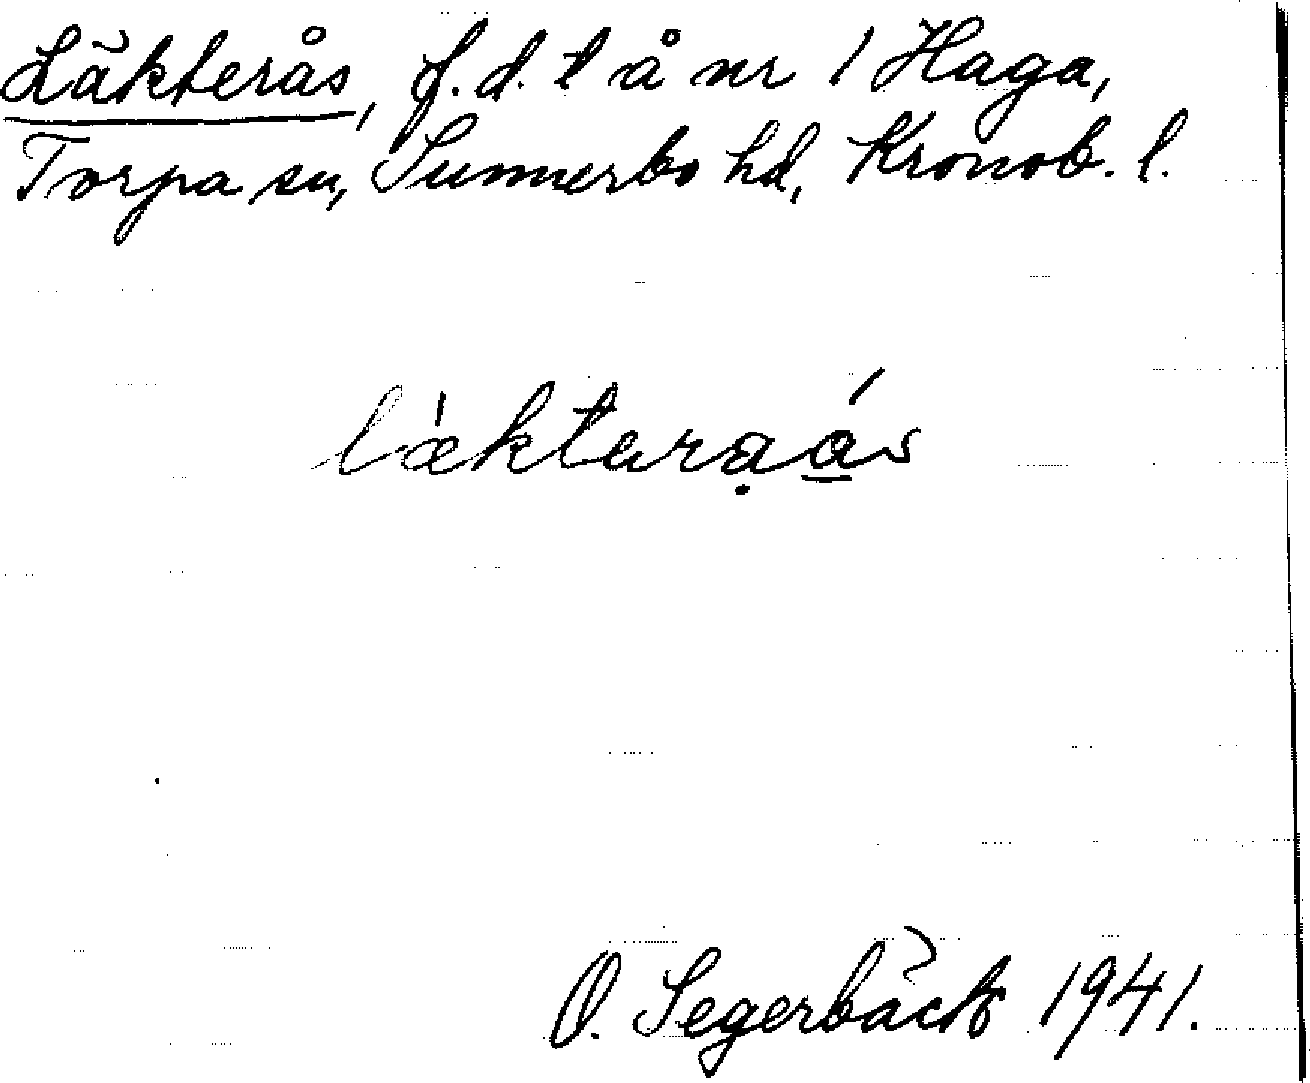 Läkterås, f.d. t å nr 1 Haga,
Torpa sn, Sunnerbo hd, Kronob. l.
lækterạås
O. Segerbäck 1941.